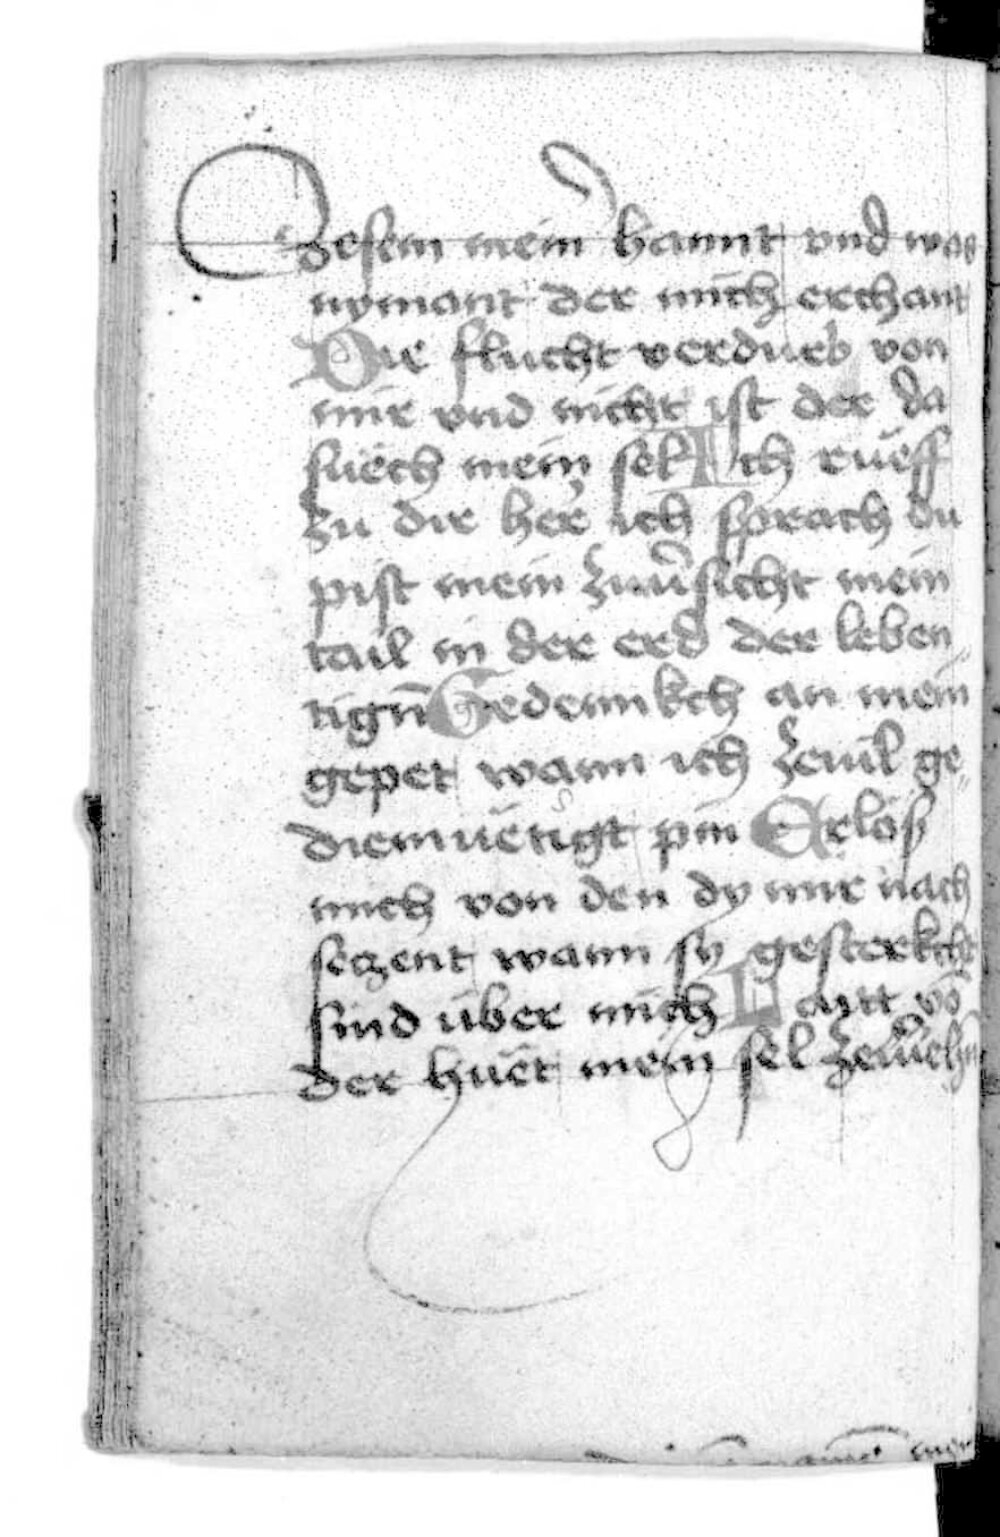 zesem mein hannt vnd was
nymant der mich erchant
Die flucht verdurb von
mir vnd nicht ist der da
suech mein sel Ich rueff
zu dir her ich sprach du
pist mein zuuersicht mein
tail in der erd der leben
tign̄ Gedennkch an mein
gepet wann ich zeuil ge
diemuetigt pin Erlos
mich von den dy mir nach
seczent wann sy gesterkcht
sind über mich Laitt vō
der huet mein sel